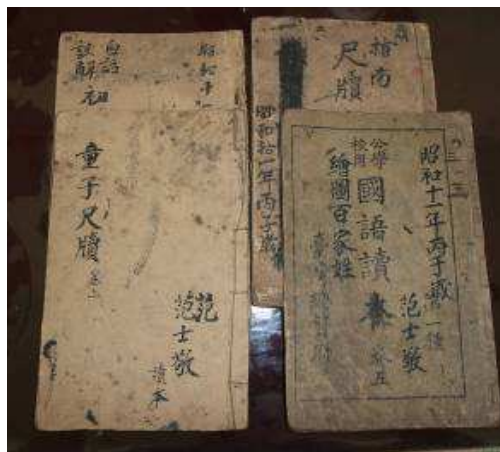 白話
註解
初
昭和十
童子尺牘
卷一
范
范士敬
讀本
指南
尺牘
昭和拾一年丙子歲
昭和十一年丙子歲
公學
校用
國語讀本
卷五
繪圖百家姓
范士敬